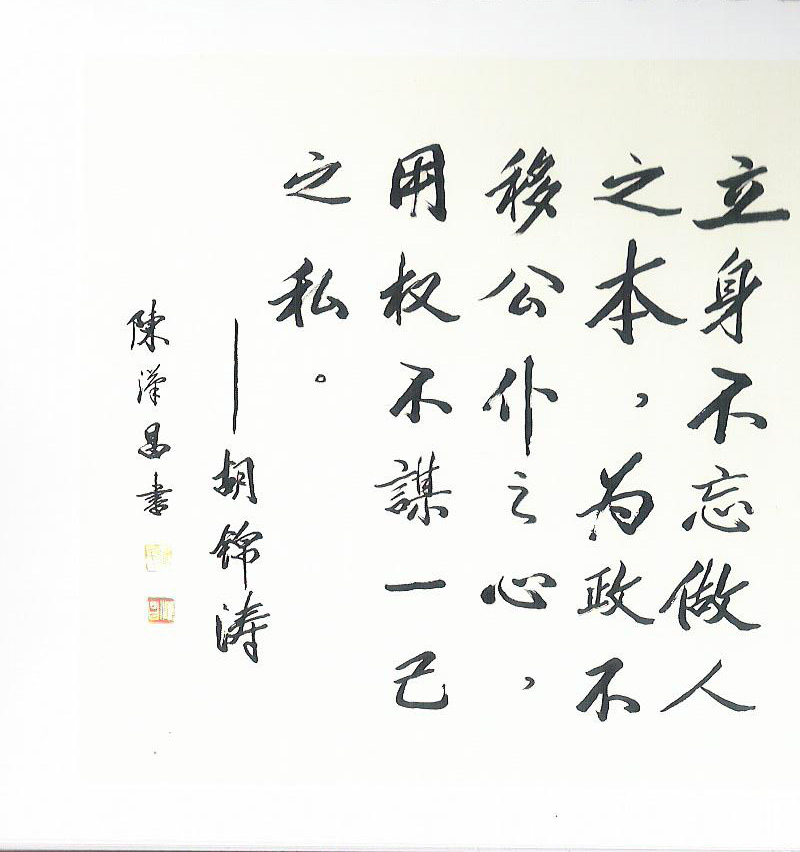 立身不忘做人
之本，为政不
移公仆之心，
用权不謀一己
之私。
——胡锦涛
陳漢昌書